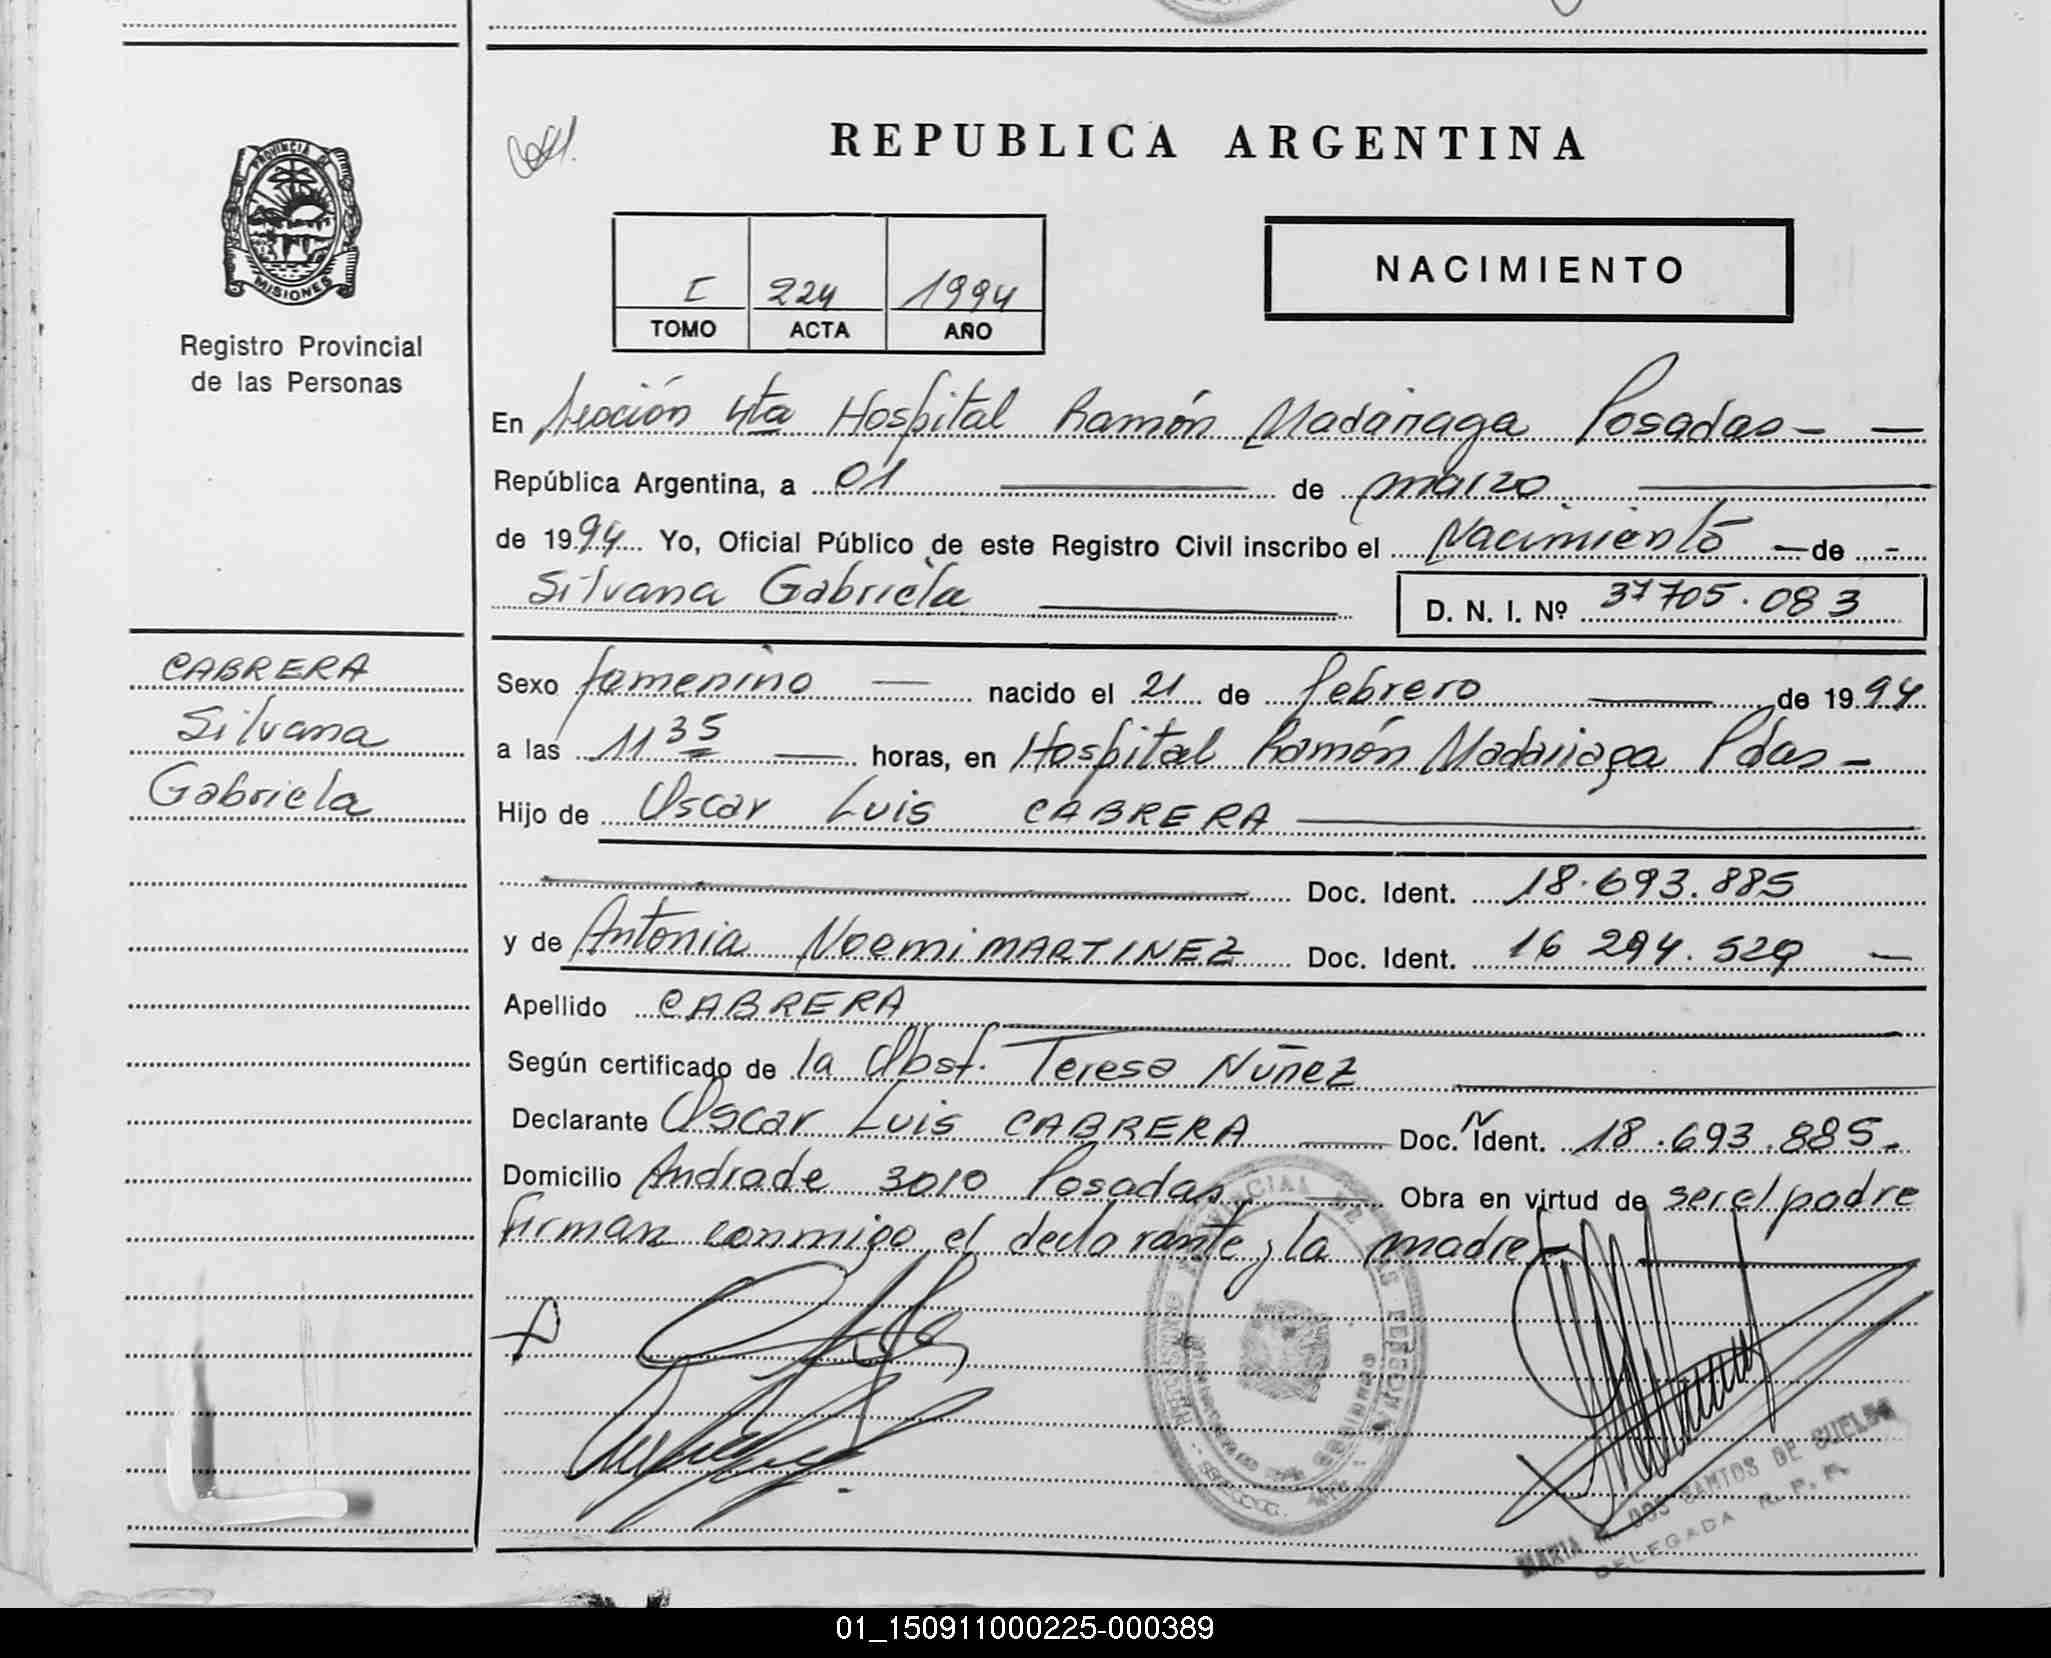 PROVINCIA DE
MISIONES
Registro Provincial
de las Personas
CABRERA
Silvana
Gabriela
REPUBLICA ARGENTINA
I 224 1994
TOMO ACTA AÑO
NACIMIENTO
En Sección 4ta Hospital Ramón Madariaga Posadas - -
República Argentina, a 01 de marzo
de 1994 Yo, Oficial Público de este Registro Civil inscribo el Nacimiento - de -
Silvana Gabriela D. N. I. Nº 37705.083
Sexo femenino - nacido el 21 de febrero de 1994
a las 11 35 - horas, en Hospital Ramón Madariaga Pdas -
Hijo de Oscar Luis CABRERA
Doc. Ident. 18.693.885
y de Antonia Noemi MARTINEZ Doc. Ident. 16 294.529 -
Apellido CABRERA
Según certificado de la Obst. Teresa Núñez
Declarante Oscar Luis CABRERA Doc. Ident. 18.693.885.
Domicilio Andrade 3010 Posadas Obra en virtud de ser el padre
firman conmigo el declarante y la madre
MARIA DOS SANTOS DE SUELDO
DELEGADA R. P. P.
01_150911000225-000389